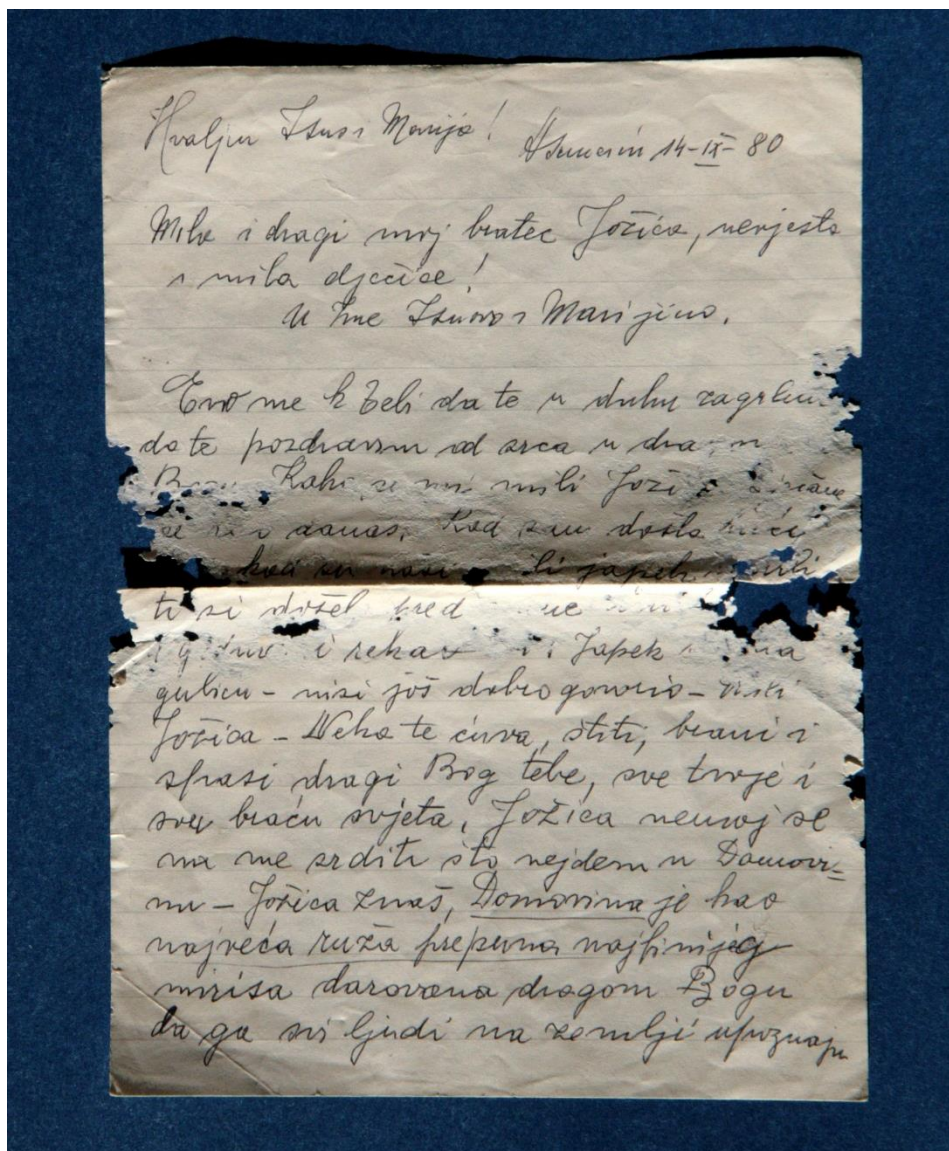 Hvaljen Isus i Marija!
Asuncion 14-IX-80
Mili i dragi moj bratec Jožica, nevjesta
i mila dječice!
U Ime Isusovo i Marijino.
Evo me k Tebi da te u duhu zagrlim
da te pozdravim od srca u
Kako se mi mili
se danas. Kad sam došla kući
japek
ti si došel pred
i rekao Japek
gubicu - nisi još dobro govorio -
Jožica - Neka te čuva, štiti, brani i
spasi dragi Bog tebe, sve tvoje i
svu braću svjeta. Jožica nemoj se
na me srditi što nejdem u Domovi=
nu - Jožica znaš, Domovina je kao
najveća ruža prepuna najfinijeg
mirisa darovana dragom Bogu
da ga svi ljudi na zemlji upoznaju